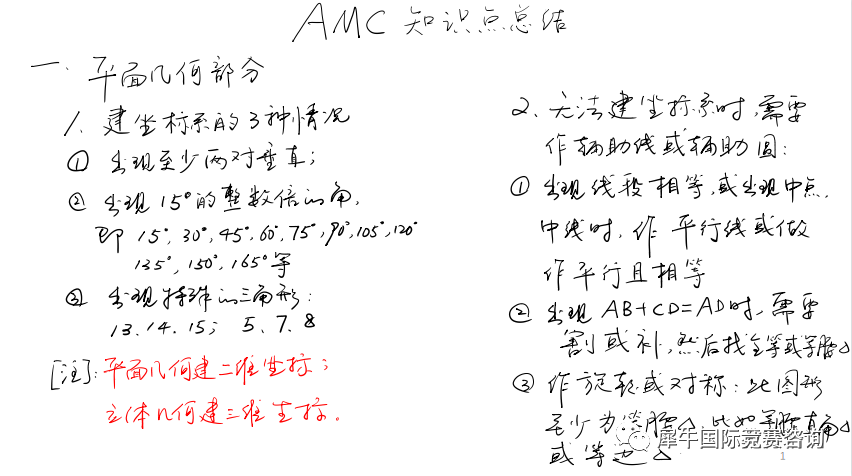 AMC 知识点总结
一. 平面几何部分
1. 建坐标系的3种情况
① 出现至少两对垂直;
② 出现15°的整数倍的角,
即 15°, 30°, 45°, 60°, 75°, 90°, 105°, 120°
135°, 150°, 165° 等
③ 出现特殊的三角形:
13. 14. 15; 5、7、8
[注]: 平面几何建二维坐标;
立体几何建三维坐标。
2、无法建坐标系时,需要
作辅助线或辅助圆:
① 出现线段相等,或出现中点,
中线时, 作 平行线或做
作平行且相等
② 出现 AB+CD=AD时, 需要
割或补,然后找全等或等腰△
③ 作旋转或对称: 此图形
至少为等腰△, 比如等腰直角△
或等边△
犀牛国际竞赛咨询
1